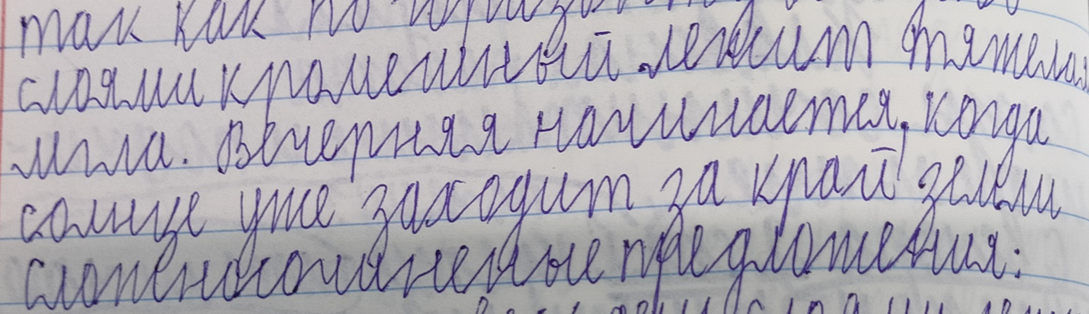 так как по
слоями кромешный лежит тяжелая
мгла. Вечерняя начинается, когда
солнце уже заходит за край земли
сложносочиненные предложения: